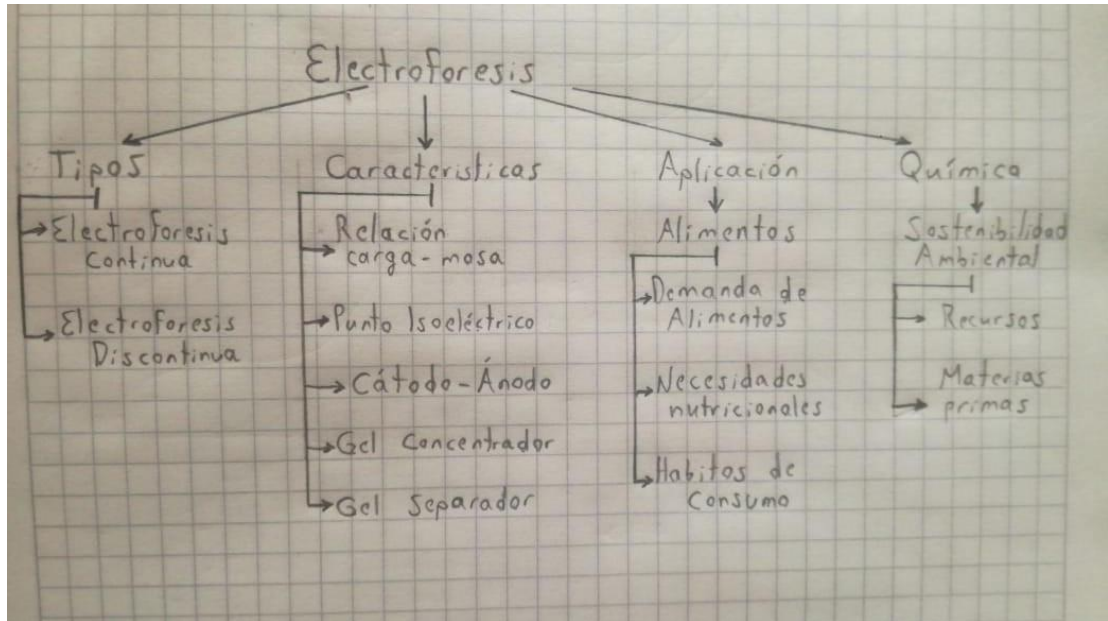 Electroforesis
Tipos
Electroforesis
Continua
Electroforesis
Discontinua
Caracteristicas
Relación
carga-masa
Punto Isoeléctrico
Cátodo-Ánodo
Gel Concentrador
Gel Separador
Aplicación
Alimentos
Demanda de
Alimentos
Necesidades
nutricionales
Habitos de
Consumo
Química
Sostenibilidad
Ambiental
Recursos
Materias
primas